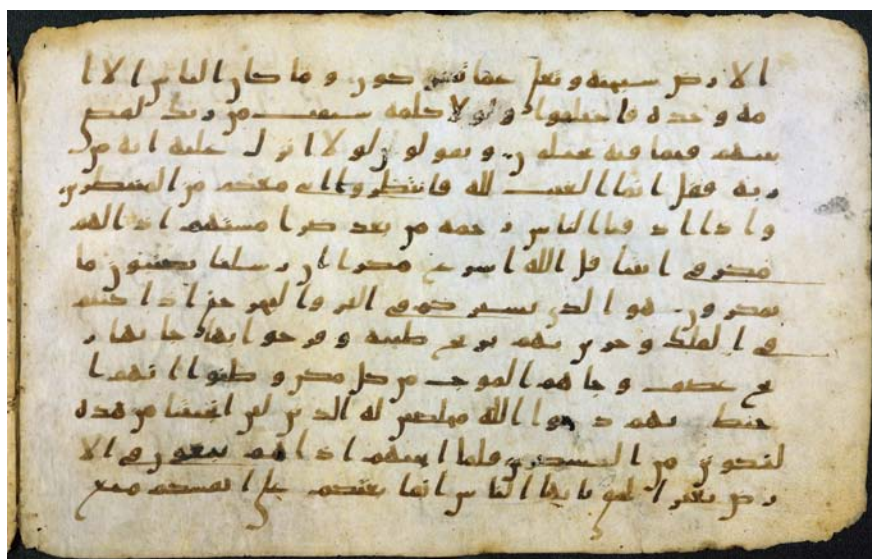 الارض سبحنه وتعلى عما يشركون وما كان الناس الا ا
مه وحده فاختلفوا ولولا كلمه سبقت من ربك لقضى
بينهم فيما فيه يختلفون ويقولون لولا انزل عليه ايه من
ربه فقل انما الغيب لله فانتظروا انى معكم من المنتظرين
واذا اذقنا الناس رحمه من بعد ضرا مستهم اذا لهم
مكر فى اياتنا قل الله اسرع مكرا ان رسلنا يكتبون ما
تمكرون هو الذى يسيركم فى البر والبحر حتى اذا كنتم
فى الفلك وجرين بهم بريح طيبه وفرحوا بها جاتها ر
يح عصف وجاهم الموج من كل مكن وظنوا انهم ا
حيط بهم دعوا الله مخلصين له الدين لين انجيتنا من هذه
لنكونن من الشكرين فلما انجيهم اذا هم يبغون فى الا
رض بغير الحق يايها الناس انما بغيكم على انفسكم متع